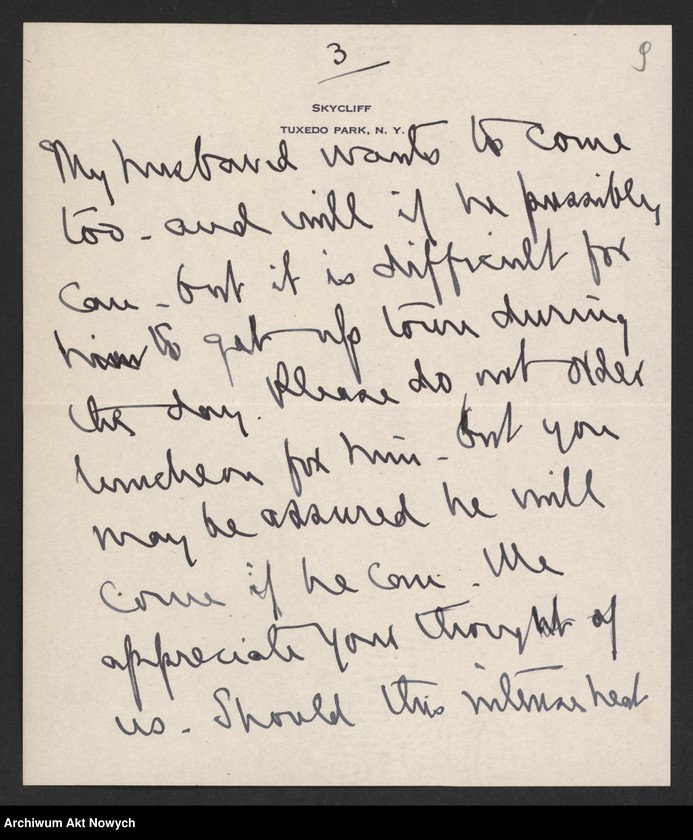 3
9
SKYCLIFF
TUXEDO PARK, N. Y.
My husband wants to come
too - and will if he possibly
can - but it is difficult for
him to get up town during
the day. Please do not order
luncheon for him - but you
may be assured he will
come if he can. We
appreciate your thought of
us - Should this intense heat
Archiwum Akt Nowych